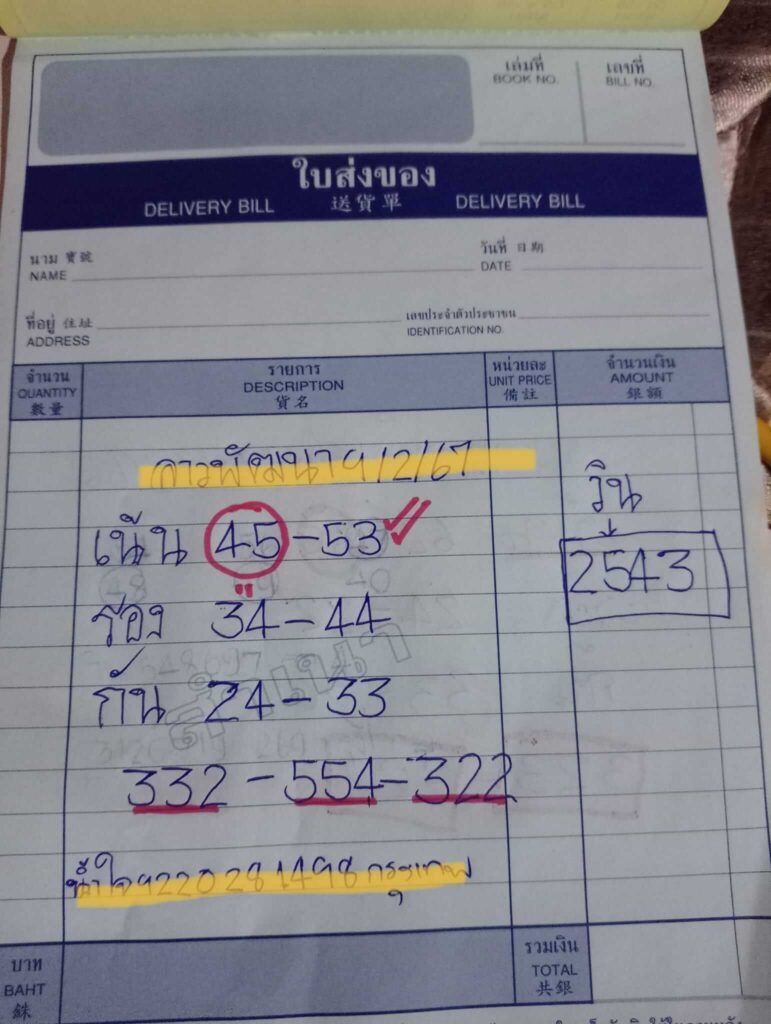 เล่มที่ เลขที่
BOOK NO. BILL NO.
ใบส่งของ
DELIVERY BILL 送貨單 DELIVERY BILL
นาม 寶號 วันที่ 日期
NAME DATE
ที่อยู่ 住址 เลขประจำตัวประชาชน
ADDRESS IDENTIFICATION NO.
จำนวน รายการ หน่วยละ จำนวนเงิน
QUANTITY DESCRIPTION UNIT PRICE AMOUNT
數量 貨名 備註 銀額
ลาวพัฒนา 9/2/67
วิน
เน้น 45-53
2543
รอง 34-44
สำเนา
กัน 24-33
332-554-322
น้ำใจ 9220281498 กรุงเทพ
บาท รวมเงิน
BAHT TOTAL
銖 共銀